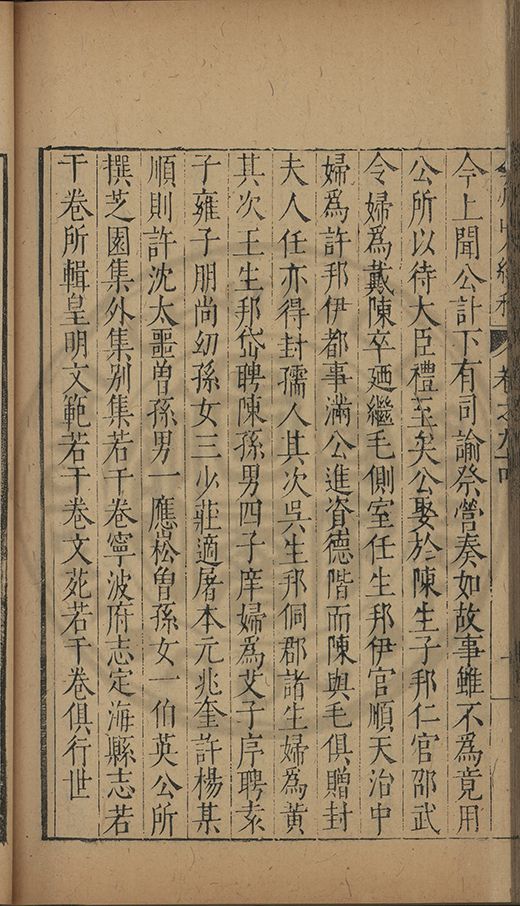 今上聞公訃下有司諭祭營奏如故事雖不為竟用
公所以待大臣禮至矣公娶於陳生子邦仁官邵武
令婦為戴陳卒廼繼毛側室任生邦伊官順天治中
婦為許邦伊都事滿公進資德階而陳與毛俱贈封
夫人任亦得封孺人其次吳生邦侗郡諸生婦為黃
其次王生邦岱聘陳孫男四子庠婦為艾子序聘袁
子雍子朋尚幼孫女三少莊適屠本元兆奎許楊某
順則許沈太噩曾孫男一應崧曾孫女一伯英公所
撰芝園集外集別集若干卷寧波府志定海縣志若
干卷所輯皇明文範若干卷文苑若干卷俱行世